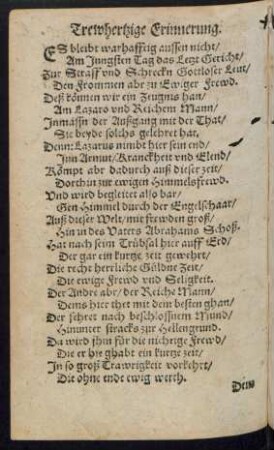 Trewhertzige Erinnerung.
ES bleibt warhafftig aussen nicht/
Am Jüngsten Tag das Letzt Gericht/
Zur Straff vnd Schreckn Gottloser Leut/
Den Frommen abr zu Ewiger Frewd.
Deß können wir ein Zeugnus han/
Am Lazaro vnd Reichem Mann/
Inmassn der Außgang mit der That/
Sie beyde solchs gelehret hat.
Denn Lazarus nimbt hier sein end/
Inn Armut/Kranckheit vnd Elend/
Kömpt abr dadurch auß dieser zeit/
Dorthin zur ewigen Himmelsfrewd.
Vnd wird begleitet also bar/
Gen Himmel durch der Engelschaar/
Auß dieser Welt/mit frewden groß/
Hin in des Vaters Abrahams Schoß.
Hat nach seim Trübsal hier auff Erd/
Der gar ein kurtze zeit gewehrt/
Die recht herrliche Güldne Zeit/
Die ewige Frewd vnd Seligkeit.
Der Andre abr/der Reiche Mann/
Dems hier thet mit dem besten ghan/
Der fehret nach beschlossnem Mund/
Hinunter stracks zur Hellengrund.
Da wird ihm für die nichtige Frewd/
Die er hie ghabt ein kurtze zeit/
In so groß Trawrigkeit verkehrt/
Die ohne ende ewig werth.
Dem